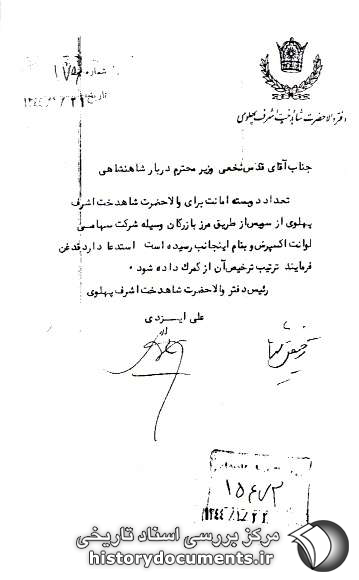 دفتر والاحضرت شاهدخت اشرف پهلوی
شماره
تاریخ
جناب آقای قدس نخعی وزیر محترم دربار شاهنشاهی
تعداد دو بسته امانت برای والاحضرت شاهدخت اشرف
پهلوی از سویس از طریق مرز بازرگان وسیله شرکت سهامی
لوانت اکسپرس و بنام اینجانب رسیده است استدعا دارد قدغن
فرمایند ترتیب ترخیص آن از گمرک داده شود ۰
رئیس دفتر والاحضرت شاهدخت اشرف پهلوی
علی ایزدی
مرکز بررسی اسناد تاریخی
historydocuments.ir